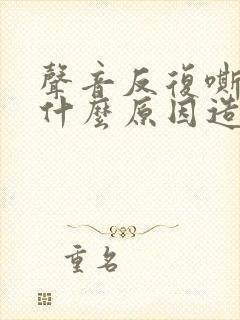 聲音反復嘶
什麼原因造
重名